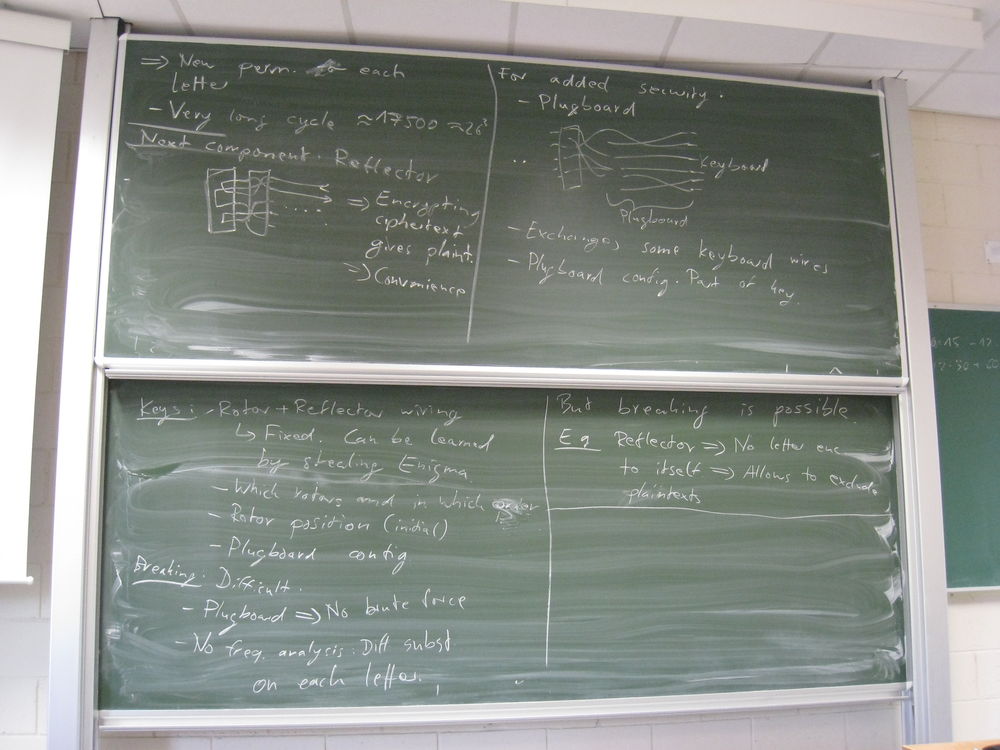 ⇒ New perm. for each
letter
- Very long cycle ≈17500 ≈26³
Next component. Reflector
⇒ Encrypting
ciphertext
gives plaint.
⇒ Convenience
For added security.
- Plugboard
Keyboard
Plugboard
- Exchanges some keyboard wires
- Plugboard config. Part of key.
Keys: - Rotor + Reflector wiring
↳ Fixed. Can be learned
by stealing Enigma.
- Which rotors and in which order
- Rotor position (initial)
- Plugboard config
Breaking: Difficult.
- Plugboard ⇒ No brute force
- No freq. analysis: Diff subst
on each letter.
But breaking is possible.
Eg Reflector ⇒ No letter enc
to itself ⇒ Allows to exclude
plaintexts